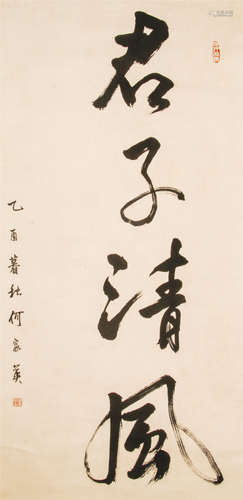 君子清風
乙酉暮秋何家英